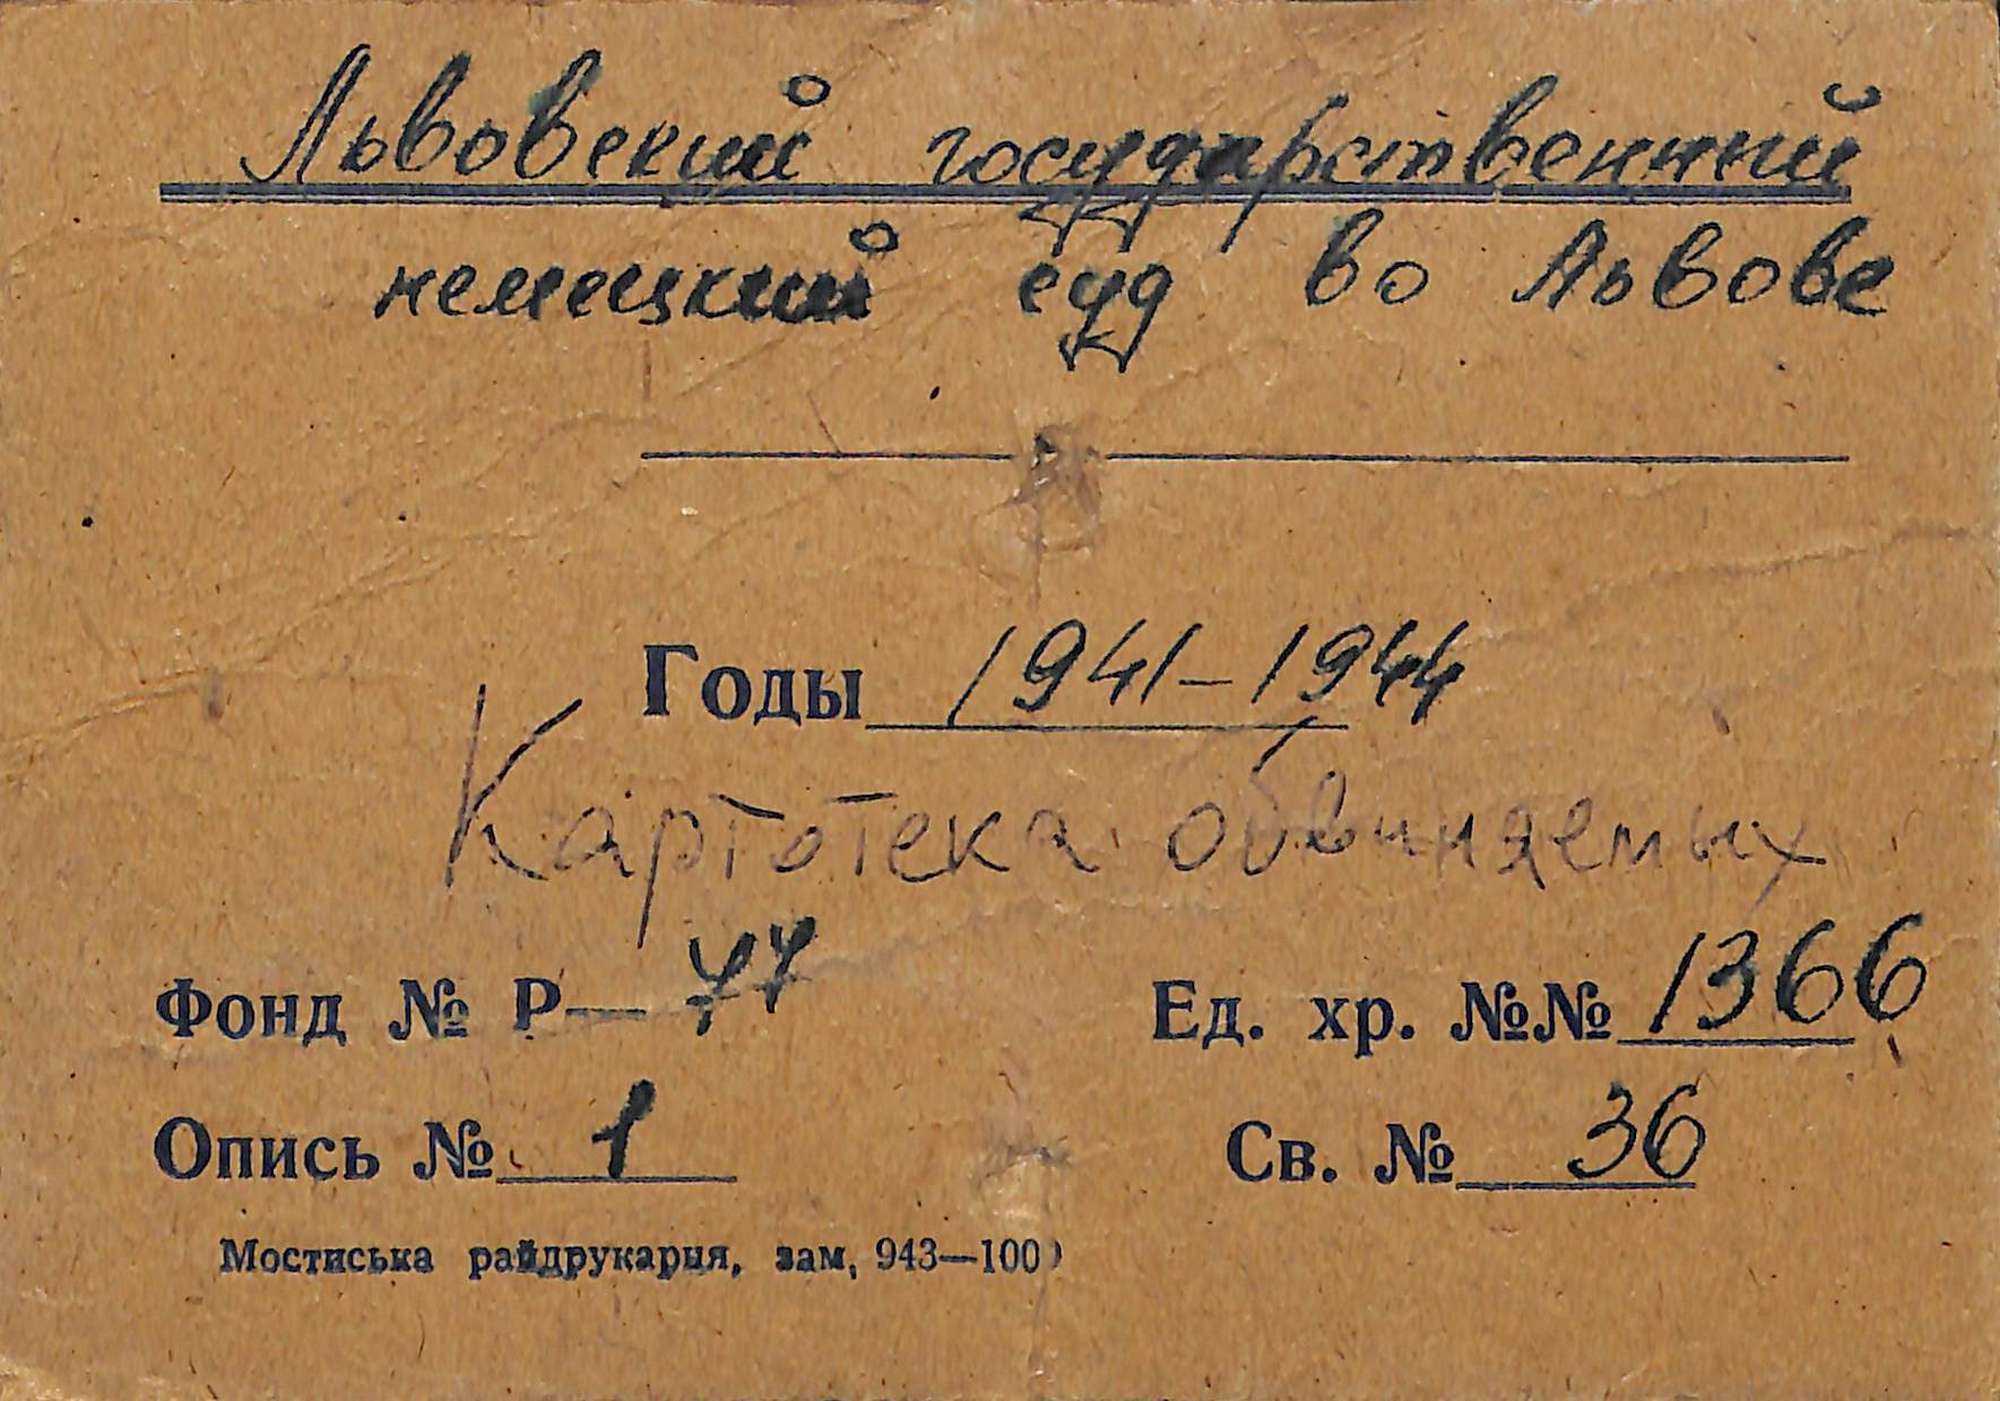 Львовский государственный
немецкий суд во Львове
Годы 1941-1944
Картотека обвиняемых
Фонд № Р- 77
Ед. хр. №№ 1366
Опись № 1
Св. № 36
Мостиська райдрукарня, зам, 943—100